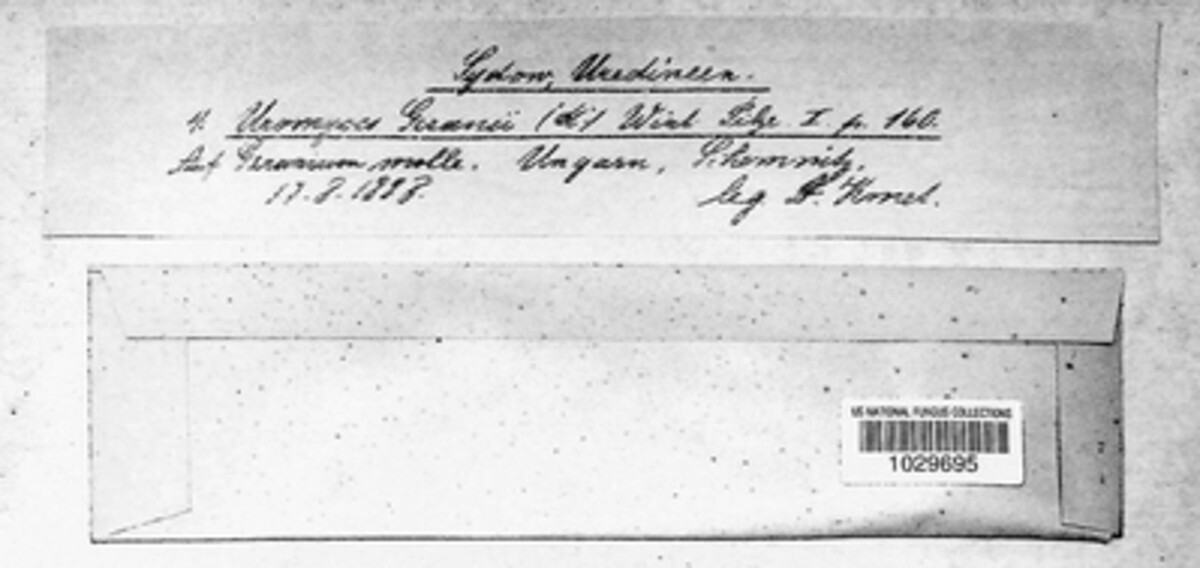 Sydow, Uredineen.
4. Uromyces Geranii (DC) Wint Pilze I p. 160.
Auf Geranium molle. Ungarn, Schemnitz.
17.8.1888. leg. A. Kmet.
US NATIONAL FUNGUS COLLECTIONS
1029695